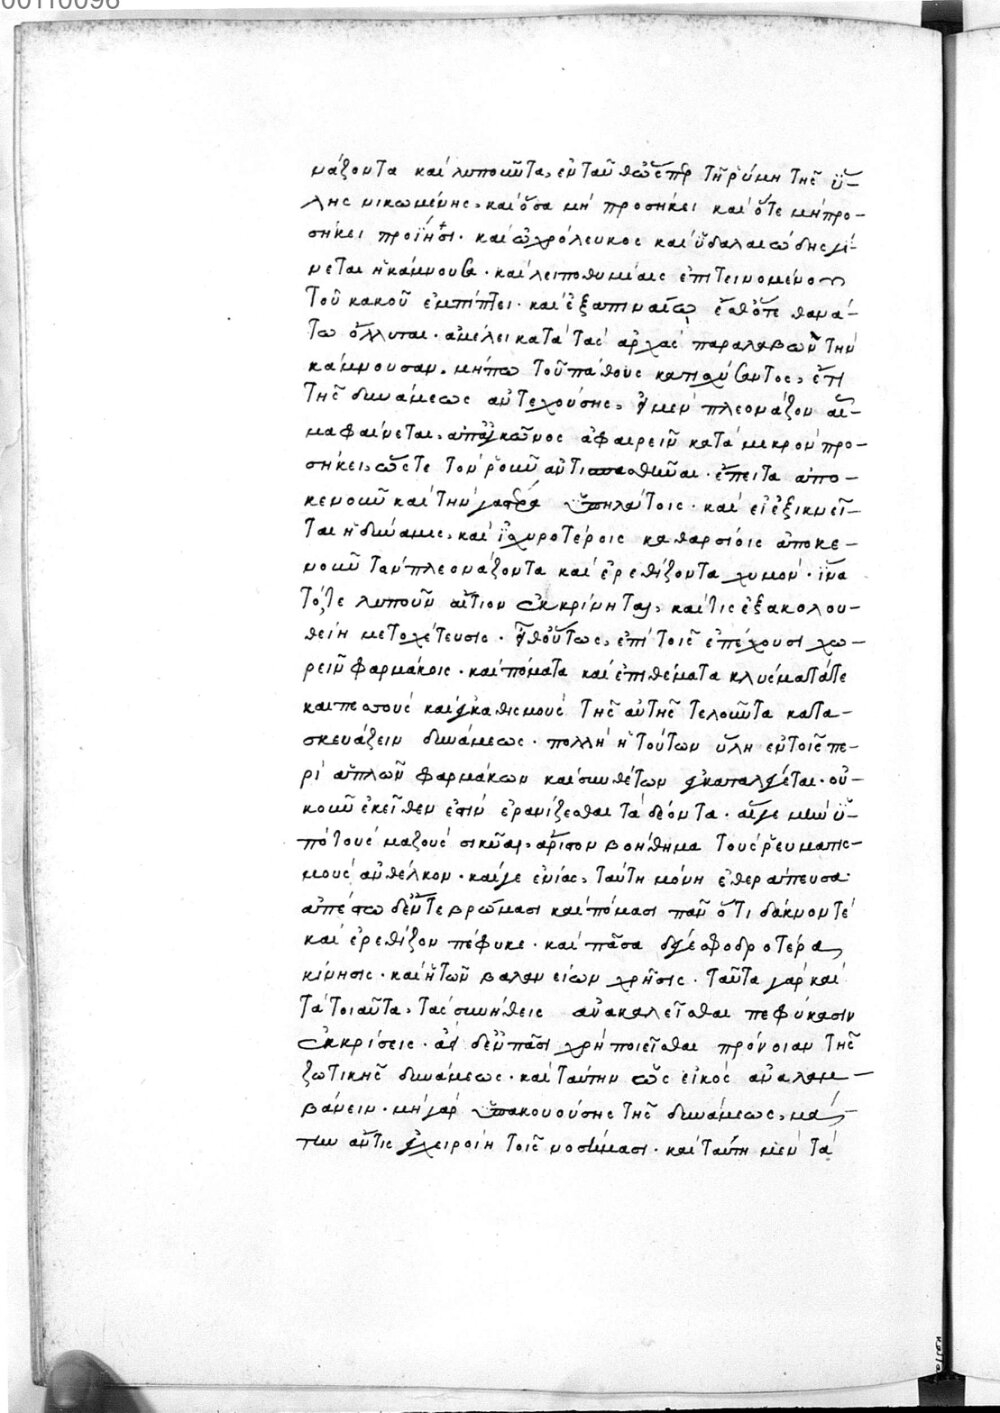 00110096
μάζοντα καὶ λυποῦντα, ἐνταῦθα ὥσπερ τῇ ῥύμῃ τῆς ὕ-
λης νικωμένης, καὶ ὅσα μὴ προσήκει καὶ ὅτε μὴ προ-
σήκει προΐησι· καὶ ὠχρόλευκος καὶ ὑδαλαιώδης γί-
νεται ἡ κάμνουσα· καὶ λειποθυμίαις ἐπιτεινομένου
τοῦ κακοῦ ἐμπίπτει· καὶ ἐξαπιναίῳ ἔσθ' ὅτε θανά-
τω ὄλλυται· ἀμέλει κατὰ τὰς ἀρχὰς παραλαβὼν τὴν
κάμνουσαν, μήπω τοῦ πάθους κατισχύσαντος, ἔτι
τῆς δυνάμεως ἀντεχούσης, εἰ μὲν πλεονάζον αἷ-
μα φαίνεται, ἀπ' ἀγκῶνος ἀφαιρεῖν κατὰ μικρὸν προ-
σήκει, ὥστε τὸν ῥοῦν ἀντισπασθῆναι· ἔπειτα ἀπο-
κενοῦν καὶ τὴν γαστέρα ὑπηλάτοις· καὶ εἰ ἐξικνεῖ-
ται ἡ δύναμις, καὶ ἰσχυροτέροις καθαρσίοις ἀποκε-
νοῦν τὸν πλεονάζοντα καὶ ἐρεθίζοντα χυμόν· ἵνα
τό,τε λυποῦν αἴτιον ἐκκρίνηται, καί τις ἐξακολου-
θείη μετοχέτευσις· εἶθ' οὕτως, ἐπὶ τοῖς ἐπέχουσι χω-
ρεῖν φαρμάκοις· καὶ πόματα καὶ ἐπιθέματα κλυσματάτε
καὶ πεσσοὺς καὶ ἐγκαθισμοὺς τῆς αὐτῆς τελοῦντα κατα-
σκευάζειν δυνάμεως· πολλὴ ἡ τούτων ὕλη ἐν τοῖς πε-
ρὶ ἁπλῶν φαρμάκων καὶ συνθέτων ἐγκαταλέγεται· οὐ-
κοῦν ἐκεῖθεν ἐστὶν ἐρανίζεσθαι τὰ δέοντα· αἵγε μὴν ὑ-
πὸ τοὺς μαζοὺς σικῦαι, ἄριστον βοήθημα τοὺς ῥευματισ-
μοὺς ἀνθέλκον· καί γε ἐνίας, ταύτῃ μόνῃ ἐθεράπευσα·
ἀπέστω δὲ ἔν τε βρώμασι καὶ πόμασι πᾶν ὅ τι δάκνον τὲ
καὶ ἐρεθίζον πέφυκε· καὶ πᾶσα δὲ σφοδροτέρα
κίνησις· καὶ ἡ τῶν βαλανείων χρῆσις· ταῦτα γὰρ καὶ
τὰ τοιαῦτα, τὰς συνήθεις ἀνακαλεῖσθαι πεφύκασιν
ἐκκρίσεις· ἀεὶ δὲ ἐν πᾶσι χρὴ ποιεῖσθαι πρόνοιαν τῆς
ζωτικῆς δυνάμεως· καὶ ταύτην ὡς εἰκὸς ἀναλαμ-
βάνειν· μὴ γὰρ ὑπακουούσης τῆς δυνάμεως, μά-
την ἄν τις ἐγχειροίη τοῖς νοσήμασι· καὶ ταύτῃ μὲν τὰ